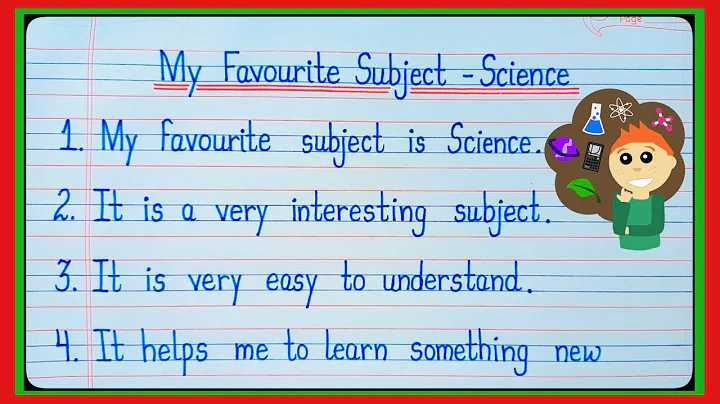 Page
My Favourite Subject - Science
1. My favourite subject is Science.
2. It is a very interesting subject.
3. It is very easy to understand.
4. It helps me to learn something new